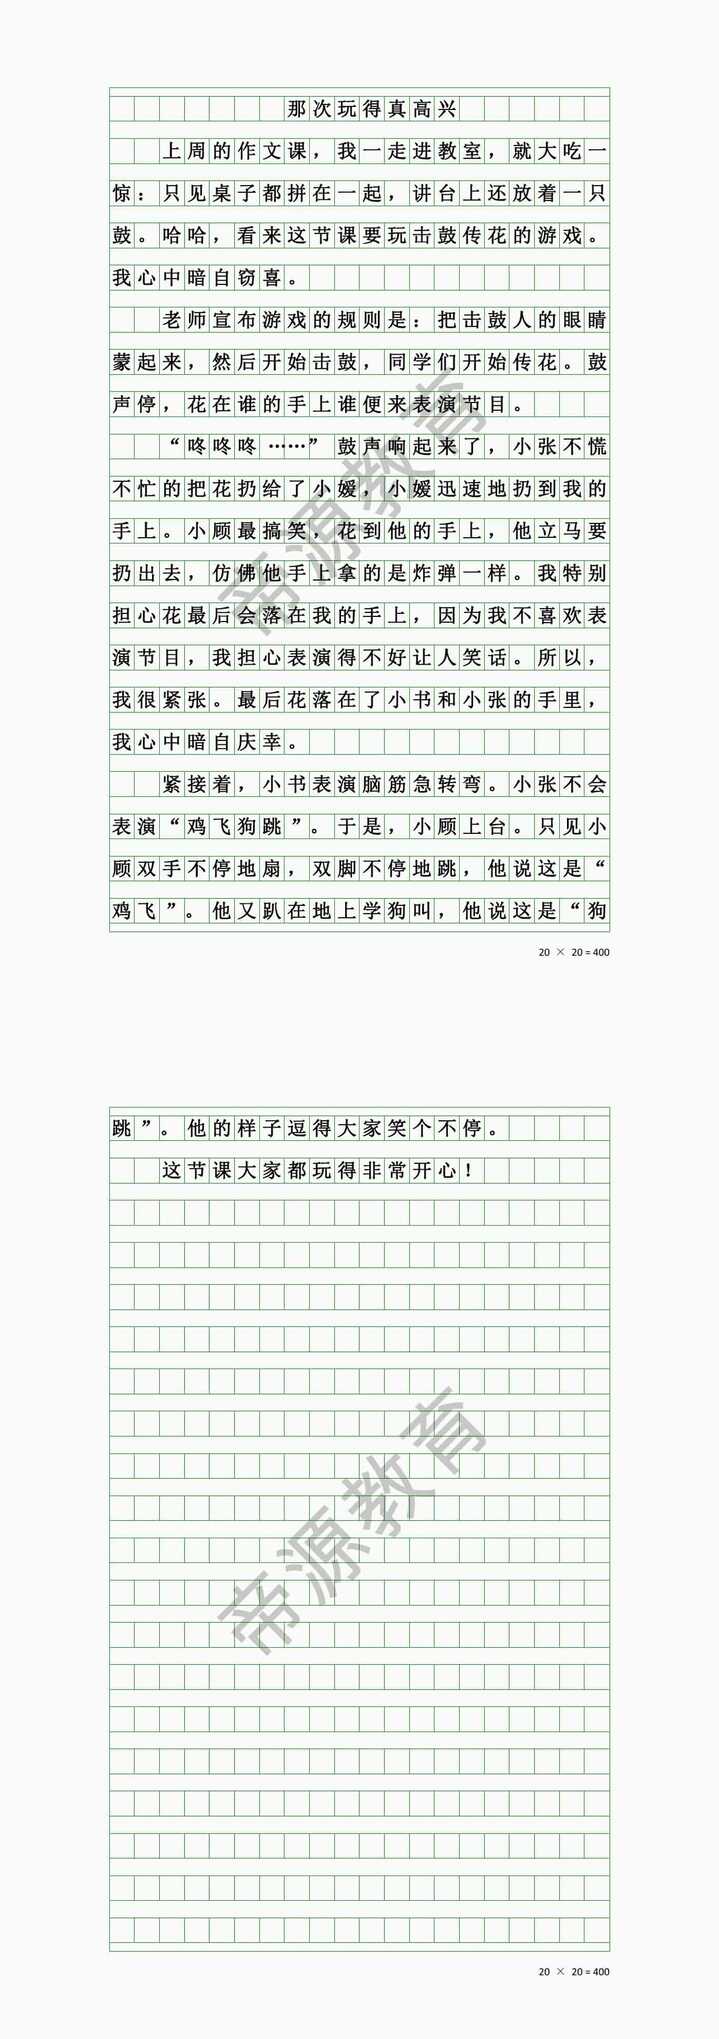 那次玩得真高兴
上周的作文课，我一走进教室，就大吃一
惊：只见桌子都拼在一起，讲台上还放着一只
鼓。哈哈，看来这节课要玩击鼓传花的游戏。
我心中暗自窃喜。
老师宣布游戏的规则是：把击鼓人的眼睛
蒙起来，然后开始击鼓，同学们开始传花。鼓
声停，花在谁的手上谁便来表演节目。
“咚咚咚……”鼓声响起来了，小张不慌
不忙的把花扔给了小嫒，小嫒迅速地扔到我的
手上。小顾最搞笑，花到他的手上，他立马要
扔出去，仿佛他手上拿的是炸弹一样。我特别
担心花最后会落在我的手上，因为我不喜欢表
演节目，我担心表演得不好让人笑话。所以，
我很紧张。最后花落在了小书和小张的手里，
我心中暗自庆幸。
紧接着，小书表演脑筋急转弯。小张不会
表演“鸡飞狗跳”。于是，小顾上台。只见小
顾双手不停地扇，双脚不停地跳，他说这是“
鸡飞”。他又趴在地上学狗叫，他说这是“狗
20 × 20 = 400
跳”。他的样子逗得大家笑个不停。
这节课大家都玩得非常开心！
20 × 20 = 400
帝源教育
帝源教育